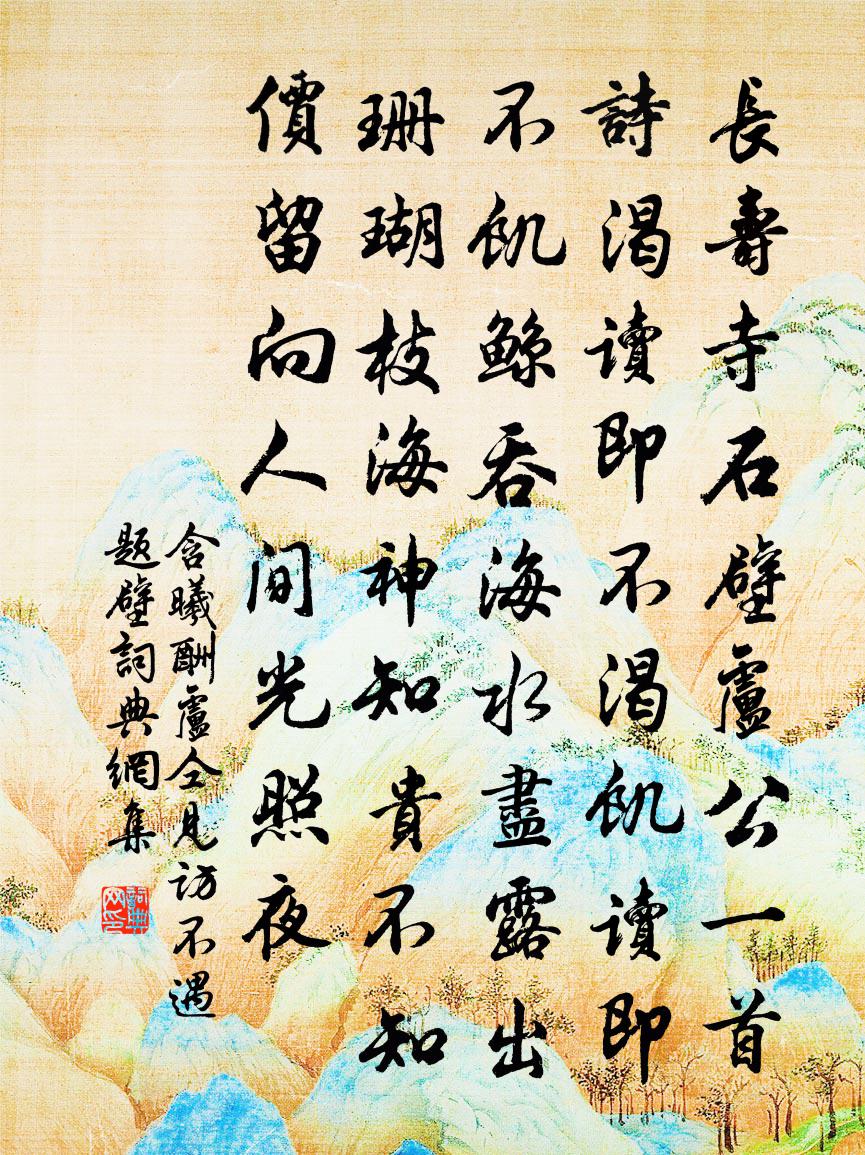 長壽寺石壁盧公一首
詩渴讀即不渴飢讀即
不飢鯨吞海水盡露出
珊瑚枝海神知貴不知
價留向人間光照夜
含曦酬盧仝見訪不遇
題壁詞典網集